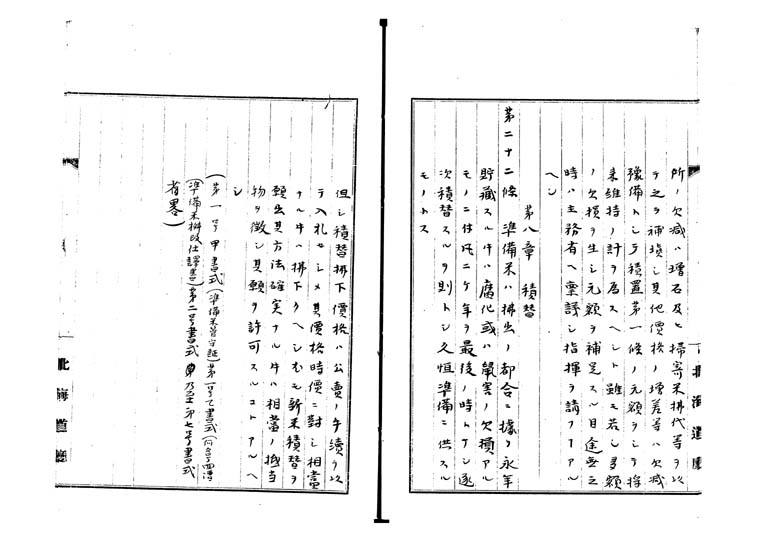 所ノ欠減ハ増石及ヒ掃寄米拂代等ヲ以
テ之ヲ補填シ其他價格ノ増差等ハ欠減
豫備トシテ積置第一條ノ元額ヲシテ将
来維持ノ計ヲ為スヘシト雖モ若シ多額
ノ欠損ヲ生シ元額ヲ補足スル目途無之
時ハ主務省ヘ稟議シ指揮ヲ請フヿアル
ヘシ
第八章 積替
第二十二條 準備米ハ拂出ノ都合ニ據リ永年
貯蔵スル牛ハ腐化或ハ鼠害ノ欠損アル
モノニ付凡ニケ年ヲ最後ノ時トナシ逐
次積替スルヲ則トシ久恒準備ニ供スル
モノトス
北海道廳
但シ積替拂下價格ハ公賣ノ手續ヲ以
テ入札セシメ其價格時價ニ對シ相當
ナル牛ハ拂下クヘシ尤モ新米積替ヲ
願出其方法確実ナル牛ハ相當ノ抵当
物ヲ徴シ其願ヲ許可スルコトアルヘ
シ
(第一号甲書式(準備米管守証)第一号乙書式
(準備米拂改仕譯書)第二号書式 乃至第七号書式
省畧)
北海道廳